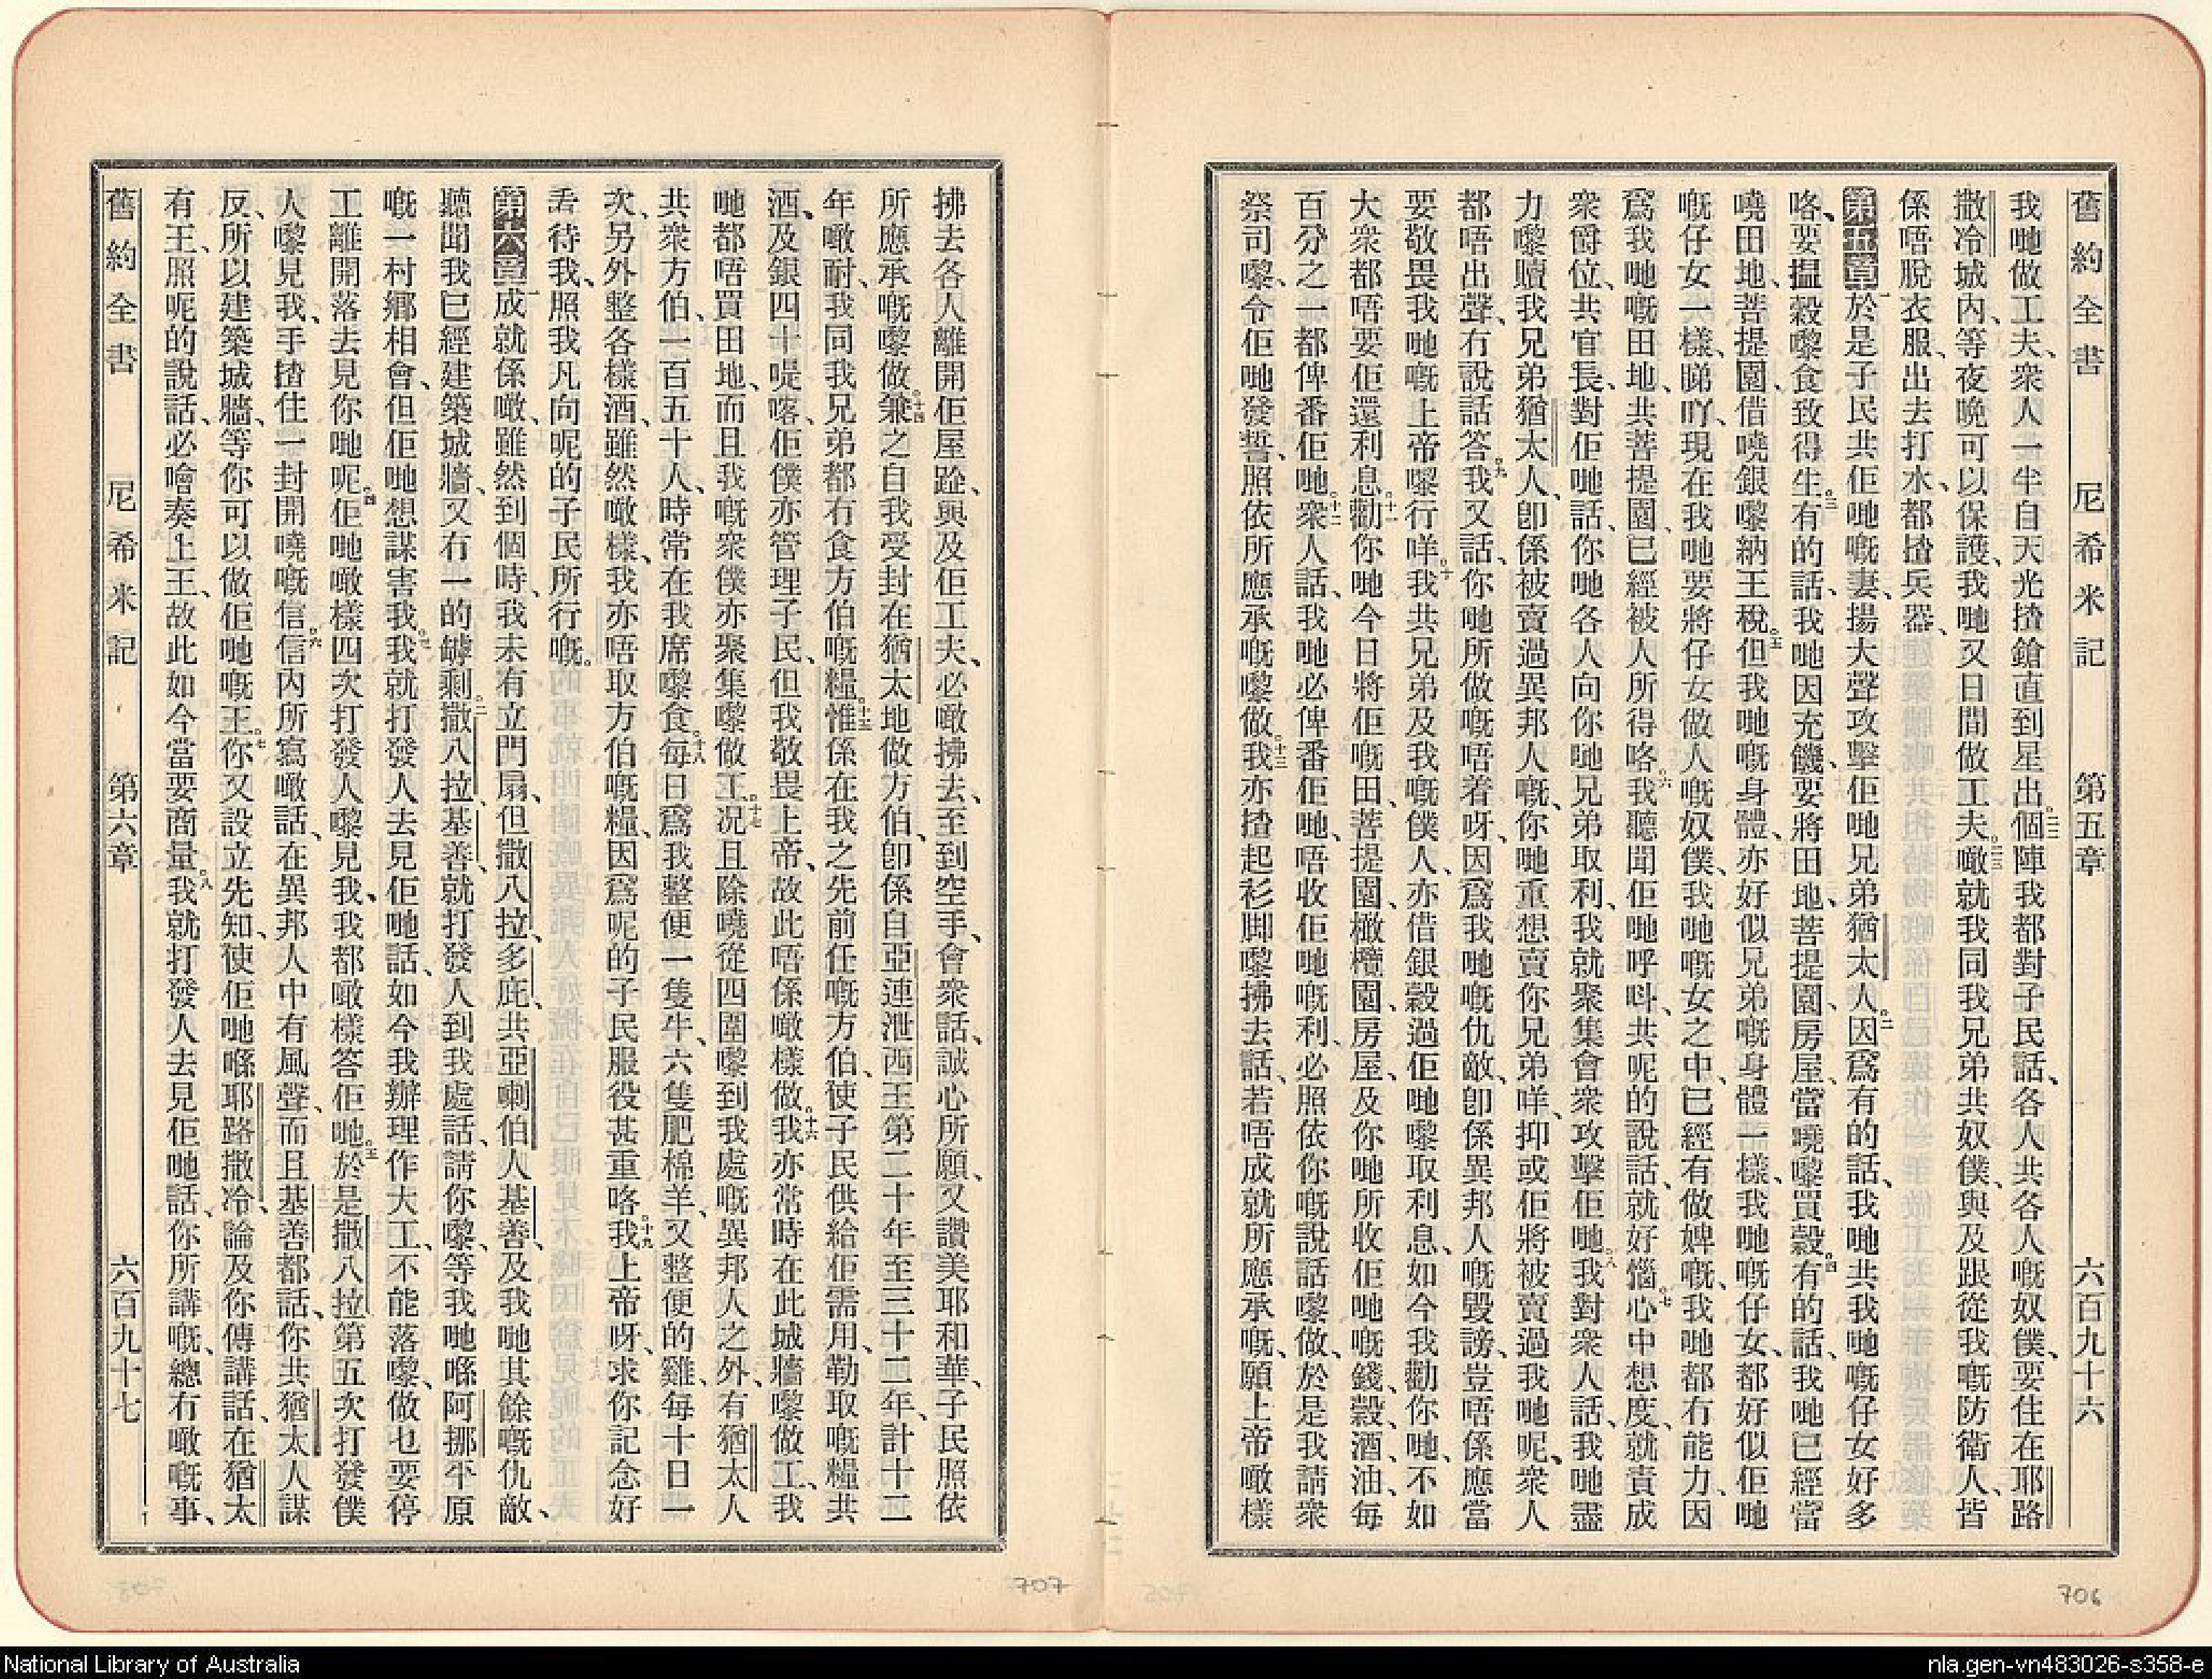 舊約全書　尼希米記　第五章　六百九十六
我哋做工夫、衆人一半自天光揸鎗直到星出。二二個陣我都對子民話、各人共各人嘅奴僕、要住在耶路
撒冷城內、等夜晚可以保護、我哋又日間做工夫。二三噉就我同我兄弟共奴僕、與及跟從我嘅防衛人、皆
係唔脫衣服、出去打水、都揸兵器、
第五章一於是子民共佢哋嘅妻、揚大聲攻擊佢哋兄弟猶太人。二因爲有的話、我哋共我哋嘅仔女好多
咯、要搵穀嚟食致得生。三有的話、我哋因充饑、要將田地、菩提園、房屋、當嘵嚟買穀。四有的話、我哋已經當
嘵田地、菩提園、借嘵銀嚟納王稅。五但我哋嘅身體、亦好似兄弟嘅身體一樣、我哋嘅仔女、都好似佢哋
嘅仔女一樣、睇吖、現在我哋要將仔女做人嘅奴僕、我哋嘅女之中、已經有做婢嘅、我哋都冇能力、因
爲我哋嘅田地、共菩提園、已經被人所得咯。六我聽聞佢哋呼呌、共呢的說話、就好惱。七心中想度、就責成
衆爵位、共官長、對佢哋話、你哋各人向你哋兄弟取利、我就聚集會衆攻擊佢哋。八我對衆人話、我哋盡
力嚟贖我兄弟猶太人、卽係被賣過異邦人嘅、你哋重想賣你兄弟咩、抑或佢將被賣過我哋呢、衆人
都唔出聲、冇說話答。九我又話、你哋所做嘅唔着呀、因爲我哋嘅仇敵、卽係異邦人嘅毀謗、豈唔係應當
要敬畏我哋嘅上帝嚟行咩。十我共兄弟及我嘅僕人、亦借銀穀過佢哋嚟取利息、如今我勸你哋、不如
大衆都唔要佢還利息。十一勸你哋今日將佢嘅田、菩提園、橄欖園、房屋、及你哋所收佢哋嘅錢、穀、酒、油、每
百分之一、都俾番佢哋。十二衆人話、我哋必俾番佢哋、唔收佢哋嘅利、必照依你嘅說話嚟做、於是我請衆
祭司嚟、令佢哋發誓、照依所應承嘅嚟做。十三我亦揸起衫脚嚟拂去、話、若唔成就所應承嘅、願上帝噉樣
拂去各人離開佢屋𨀣、與及佢工夫、必噉拂去、至到空手、會衆話、誠心所願、又讚美耶和華、子民照依
所應承嘅嚟做。十四兼之自我受封在猶太地做方伯、卽係自亞連泄西王第二十年至三十二年、計十二
年噉耐、我同我兄弟都冇食方伯嘅糧。十五惟係在我之先前任嘅方伯、使子民供給佢需用、勒取嘅糧共
酒、及銀四十㖷喀、佢僕亦管理子民、但我敬畏上帝、故此唔係噉樣做。十六我亦常時在此城牆嚟做工、我
哋都唔買田地、而且我嘅衆僕亦聚集嚟做工。十七况且除嘵從四圍嚟到我處嘅異邦人之外、有猶太人
共衆方伯、一百五十人、時常在我席嚟食。十八每日爲我整便一隻牛、六隻肥棉羊、又整便的雞、每十日一
次、另外整各樣酒、雖然噉樣、我亦唔取方伯嘅糧、因爲呢的子民服役甚重咯。十九我上帝呀、求你記念好
丢待我、照我凡向呢的子民所行嘅。
第六章一成就係噉、雖然到個時、我未有立門扇、但撒八拉、多庇、共亞喇伯人基善、及我哋其餘嘅仇敵、
聽聞我已經建築城牆、又冇一的罅剩。二撒八拉、基善、就打發人到我處話、請你嚟、等我哋喺阿挪平原
嘅一村鄉相會、但佢哋想謀害我。三我就打發人去見佢哋話、如今我辦理作大工、不能落嚟、做乜要停
工離開落去見你哋呢。四佢哋噉樣四次打發人嚟見我、我都噉樣答佢哋。五於是撒八拉第五次打發僕
人嚟見我、手揸住一封開嘵嘅信。六信內所寫噉話、在異邦人中有風聲、而且基善都話、你共猶太人謀
反、所以建築城牆、等你可以做佢哋嘅王。七你又設立先知、使佢哋喺耶路撒冷、論及你傳講話、在猶太
有王、照呢的說話、必噲奏上王、故此如今當要商量。八我就打發人去見佢哋話、你所講嘅、總冇噉嘅事、
舊約全書　尼希米記　第六章　六百九十七
707
706
National Library of Australia
nla.gen-vn483026-s358-e